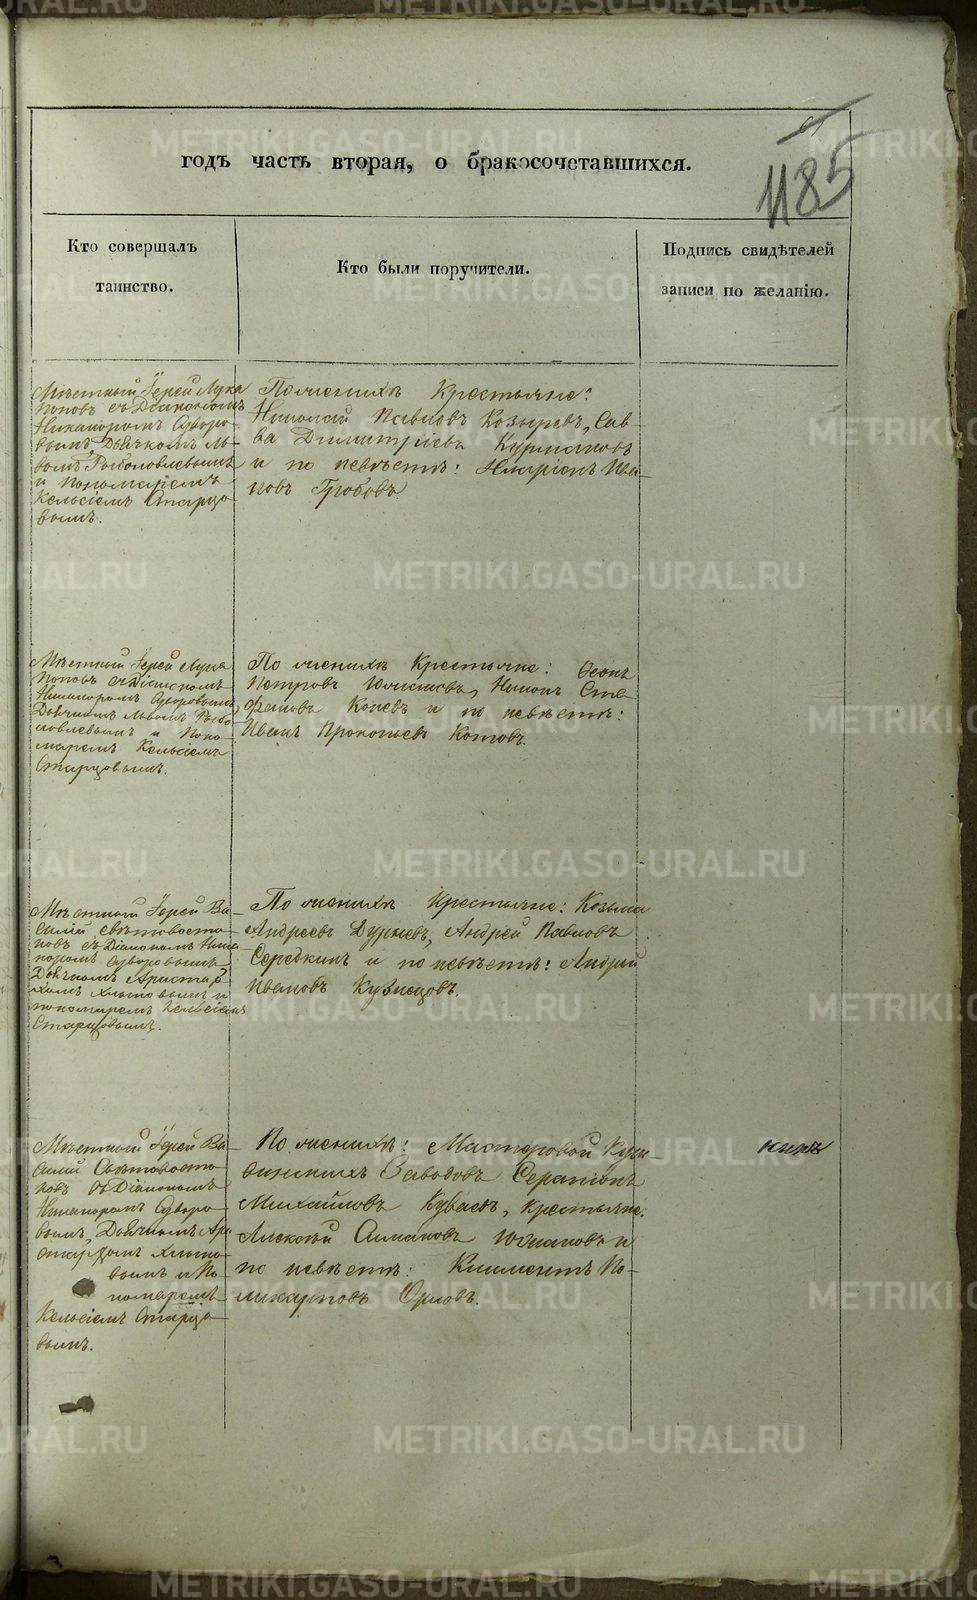 1185
годъ часть вторая, о бракосочетавшихся.
Кто совершалъ
таинство.
Кто были поручители.
Подпись свидѣтелей
записи по желанію.
Мѣстный Іерей Лука
Поповъ съ Діакономъ
Никаноромъ Суворо-
вымъ, Дьячкомъ Ль-
вомъ Рыболовлевымъ
и Пономаремъ
Кельсіемъ Старцо-
вымъ.
По женихѣ Крестьяне:
Николай Павловъ Козыревъ, Сав-
ва Димитріевъ Курмановъ
и по невѣстѣ: Иларіонъ Ива-
новъ Гробовъ.
Мѣстный Іерей Лука
Поповъ съ Діакономъ
Никаноромъ Суворовымъ,
Дьячкомъ Львомъ Рыбо-
ловлевымъ и Поно-
маремъ Кельсіемъ
Старцовымъ.
По женихѣ Крестьяне:
Петровъ Никонъ Сте
фановъ Коневъ и по невѣстѣ:
Иванъ Прокопьевъ Котовъ.
Мѣстный Іерей Ва-
силій Свѣтовосто-
ковъ съ Діакономъ Ника
норомъ Суворовымъ
Дьячкомъ Аристар-
хомъ и
пономаремъ Кельсіемъ
Старцовымъ.
По женихѣ Крестьяне: Козьма
Андреевъ Дурневъ, Андрей Павловъ
Середкинъ и по невѣстѣ: Андрей
Ивановъ Кузнецовъ.
Мѣстный Іерей Ва-
силій Свѣтовосто-
ковъ съ Діакономъ
Никаноромъ Суворо-
вымъ, Дьячкомъ Ари
стархомъ
вымъ и По-
номаремъ
Кельсіемъ Старцо-
вымъ.
По женихѣ: Мастеровой
Заводовъ Серапіонъ
Михайловъ Куваевъ, Крестьяне:
Алексѣй и
по невѣстѣ: Климентъ По-
ликарповъ Орловъ.
METRIKI.GASO-URAL.RU